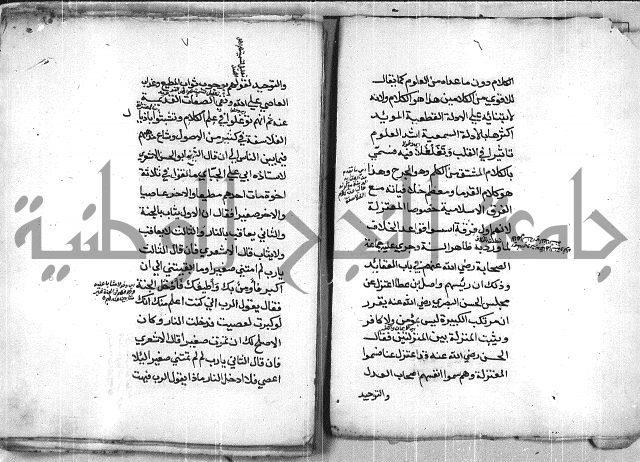 ٦
الكلام دون ما عداه من العلوم كما يقال
للاقوى من الكلامين هذا هو الكلام ولانه
لابتنائه على الادلة القطعية المؤيد
اكثرها بالادلة السمعية اشد العلوم
تاثيرا في القلب وتغلغلا فيه فسمي
بالكلام المشتق من الكلم وهو الجرح وهذا
هو كلام القدماء ومعظم خلافياته مع
الفرق الاسلامية خصوصا المعتزلة
لانهم اول فرقة اسسوا قواعد الخلاف
لما ورد به ظاهر السنة وجرى عليه جماعة
الصحابة رضي الله عنهم في باب العقائد
وذلك ان رئيسهم واصل بن عطا اعتزل عن
مجلس الحسن البصري رضي الله عنه يقرر
ان مرتكب الكبيرة ليس بمؤمن ولا كافر
ويثبت المنزلة بين المنزلتين فقال
الحسن رضي الله عنه قد اعتزل عنا فسموا
المعتزلة وهم سموا انفسهم اصحاب العدل
والتوحيد
٧
والتوحيد لقولهم بوجوب ثواب المطيع وعقاب
العاصي على الله ونفي الصفات القديمة
عنه ثم انهم توغلوا في علم الكلام وتشبثوا باذيال
الفلاسفة في كثير من الاصول وشاع مذهبهم
فيما بين الناس الى ان قال الشيخ ابو الحسن الاشعري
لاستاذه ابي علي الجبائي ما تقول في ثلاثة
اخوة مات احدهم مطيعا والاخر عاصيا
والاخر صغيرا فقال ان الاول يثاب بالجنة
والثاني يعاقب بالنار والثالث لا يعاقب
ولا يثاب قال الاشعري فان قال الثالث
يارب لم امتني صغيرا وما ابقيتني الى ان
اكبر فأومن بك واطيعك فادخل الجنة
فقال يقول الرب اني كنت اعلم منك انك
لو كبرت لعصيت فدخلت النار وكان
الاصلح لك ان تموت صغيرا قال الاشعري
فان قال الثاني يارب لم لم تمتني صغيرا لئلا
اعصي فلا ادخل النار ماذا يقول الرب فبهت
جامعة النجاح الوطنية